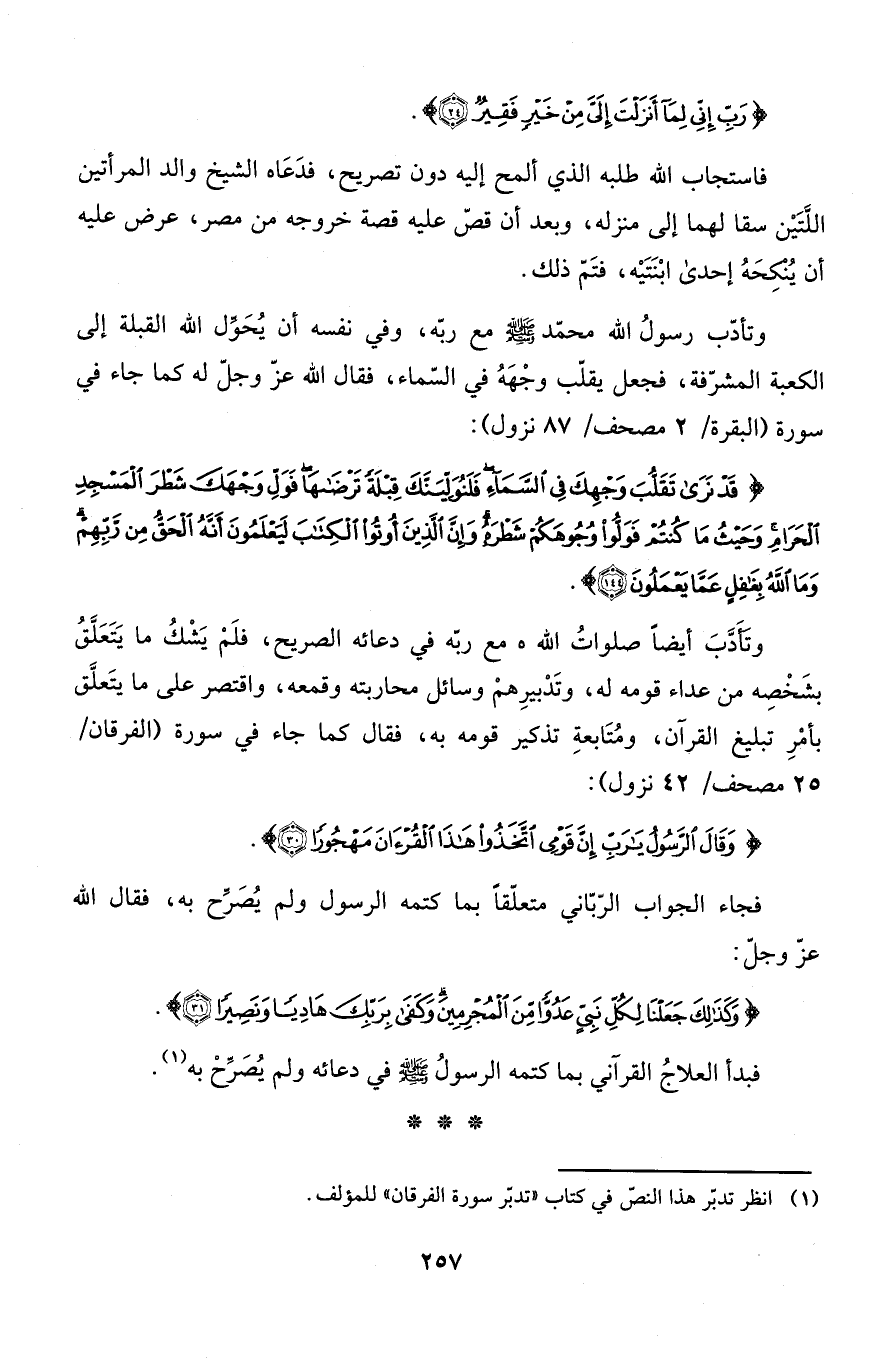 ﴿ رَبِّ إِنِّي لِمَآ أَنزَلْتَ إِلَيَّ مِنْ خَيْرٍ فَقِيرٌ ۝٢٤﴾ .
فاستجاب الله طلبه الذي ألمح إليه دون تصريح، فدَعَاه الشيخ والد المرأتين
اللَّتَيْن سقا لهما إلى منزله، وبعد أن قصّ عليه قصة خروجه من مصر، عرض عليه
أن يُنْكِحَهُ إحدىٰ ابْنَتَيْه، فتَمّ ذلك.
وتأدّب رسولُ الله محمّد ﷺ مع ربّه، وفي نفسه أن يُحَوِّل الله القبلة إلى
الكعبة المشرّفة، فجعل يقلّب وجْهَهُ في السّماء، فقال الله عزّ وجلّ له كما جاء في
سورة (البقرة/ ٢ مصحف/ ٨٧ نزول):
﴿ قَدْ نَرَىٰ تَقَلُّبَ وَجْهِكَ فِى ٱلسَّمَآءِ ۖ فَلَنُوَلِّيَنَّكَ قِبْلَةً تَرْضَىٰهَا ۚ فَوَلِّ وَجْهَكَ شَطْرَ ٱلْمَسْجِدِ
ٱلْحَرَامِ ۚ وَحَيْثُ مَا كُنتُمْ فَوَلُّوا۟ وُجُوهَكُمْ شَطْرَهُۥ ۗ وَإِنَّ ٱلَّذِينَ أُوتُوا۟ ٱلْكِتَٰبَ لَيَعْلَمُونَ أَنَّهُ ٱلْحَقُّ مِن رَّبِّهِمْ ۗ
وَمَا ٱللَّهُ بِغَٰفِلٍ عَمَّا يَعْمَلُونَ ۝١٤٤﴾ .
وتَأَدَّبَ أيضاً صلواتُ الله ه مع ربّه في دعائه الصريح، فلَمْ يَشْكُ ما يَتَعَلَّقُ
بشَخْصِه من عداء قومه له، وتَدْبيرِهمْ وسائل محاربته وقمعه، واقتصر على ما يتَعلَّق
بأمْرِ تبليغ القرآن، ومُتَابعةِ تذكير قومه به، فقال كما جاء في سورة (الفرقان/
٢٥ مصحف/ ٤٢ نزول):
﴿ وَقَالَ ٱلرَّسُولُ يَٰرَبِّ إِنَّ قَوْمِى ٱتَّخَذُوا۟ هَٰذَا ٱلْقُرْءَانَ مَهْجُورًا ۝٣٠﴾ .
فجاء الجواب الرّبّاني متعلّقاً بما كتمه الرسول ولم يُصَرِّح به، فقال الله
عزّ وجلّ:
﴿ وَكَذَٰلِكَ جَعَلْنَا لِكُلِّ نَبِيٍّ عَدُوًّا مِّنَ ٱلْمُجْرِمِينَ ۗ وَكَفَىٰ بِرَبِّكَ هَادِيًا وَنَصِيرًا ۝٣١﴾ .
فبدأ العلاجُ القرآني بما كتمه الرسولُ ﷺ في دعائه ولم يُصَرِّحْ به(١).
* * *
(١) انظر تدبّر هذا النصّ في كتاب «تدبّر سورة الفرقان» للمؤلف.
٢٥٧